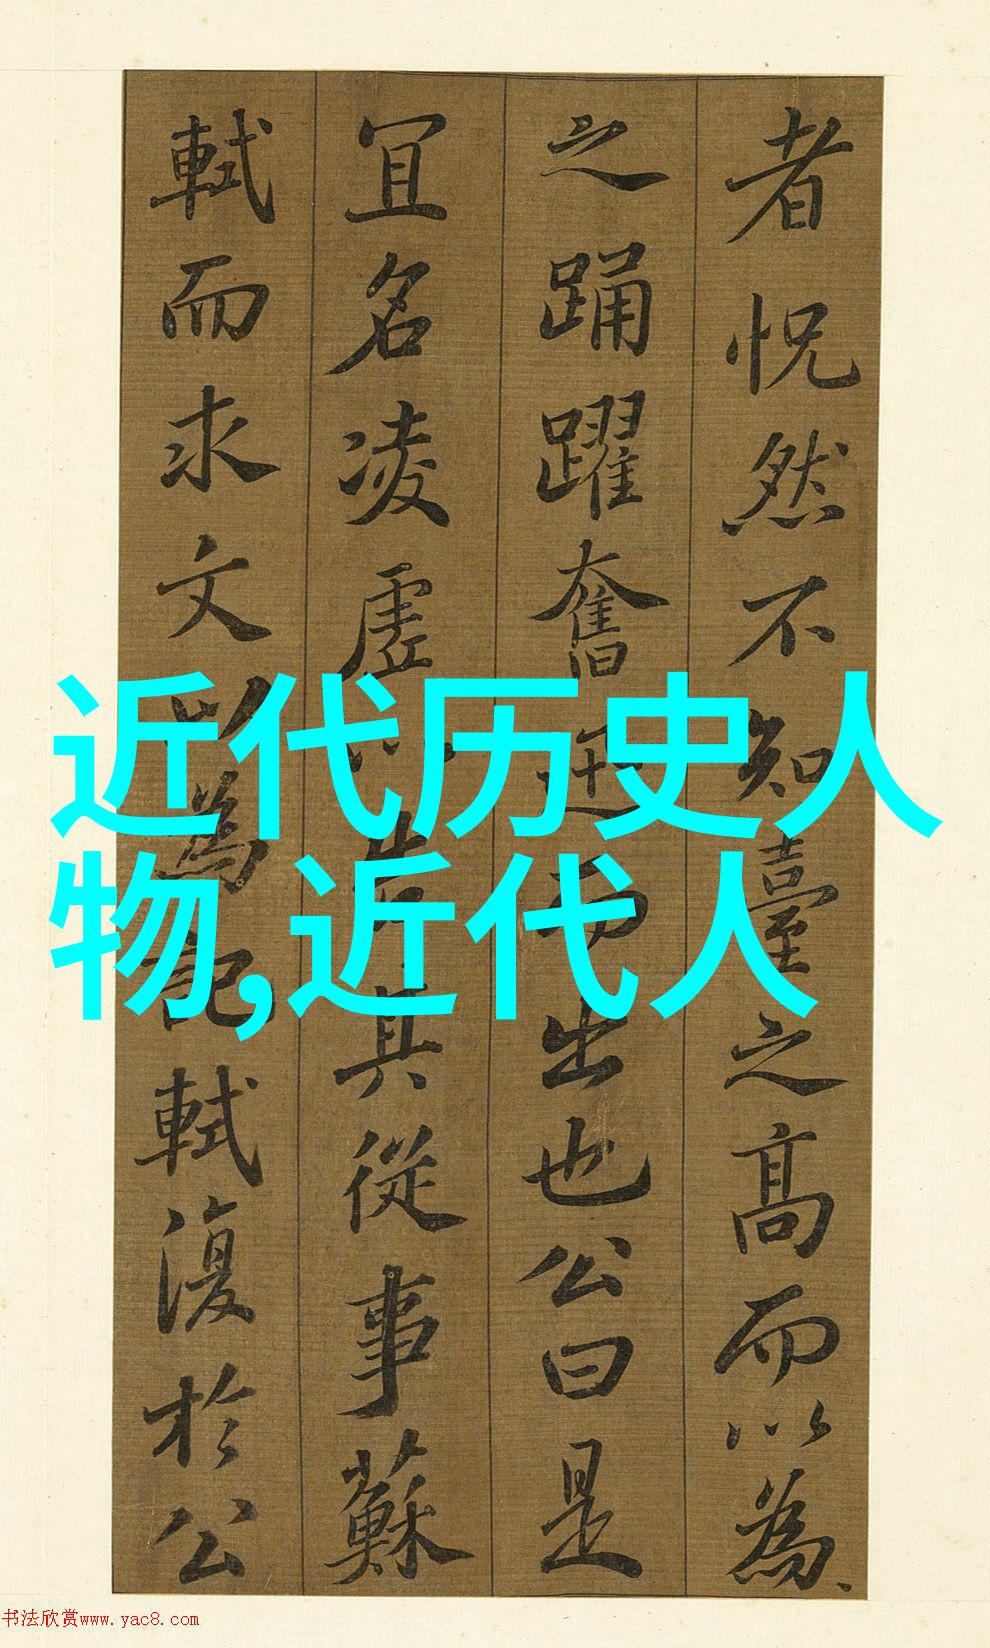 者怳然不知臺之髙而以為
之踊躍奮迅而出也公曰是
冝名凌虛以告其從事蘇
軾而求文以為記軾復於公
近代历史人
物,近代人
书法欣赏www.yac8.com